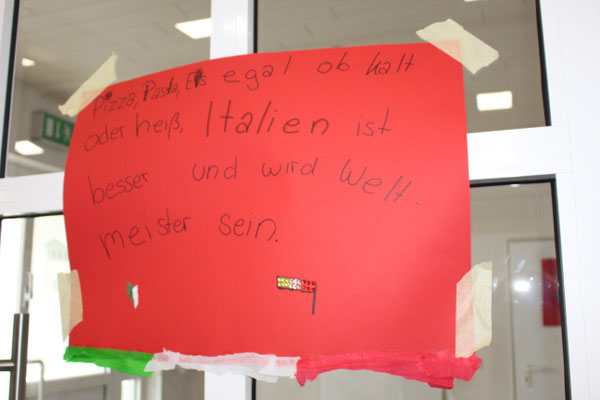 Pizza, Pasta, Eis egal ob kalt
oder heiß, Italien ist
besser und wird Welt-
meister sein.